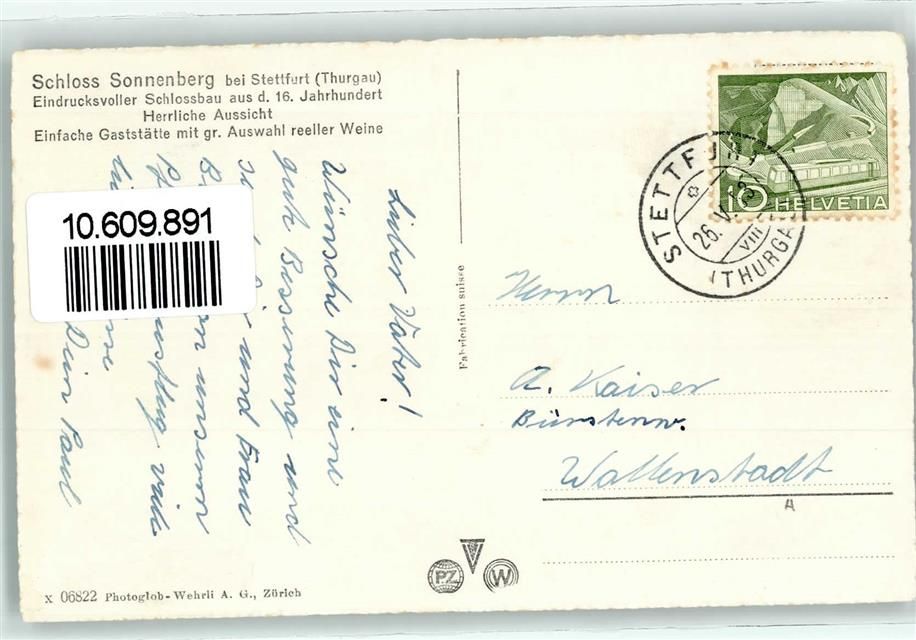 Schloss Sonnenberg bei Stettfurt (Thurgau)
Eindrucksvoller Schlossbau aus d. 16. Jahrhundert
Herrliche Aussicht
Einfache Gaststätte mit gr. Auswahl reeller Weine
10.609.891
Lieber Vater!
Wünsche Dir eine
gute Besserung und
und Frau
von unserem
viele
Dein Paul
Fabrication suisse
10 HELVETIA
STETTFURT
26. V. 53
VIII
(THURGAU)
Herrn
A. Kaiser
Bürstenw.
Wallenstadt
A
PZ
W
X 06822 Photoglob-Wehrli A. G., Zürich